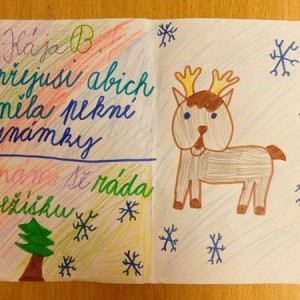 Kája B.
přejusi abich
měla pekné
známky
mam sě ráda
ežíšku